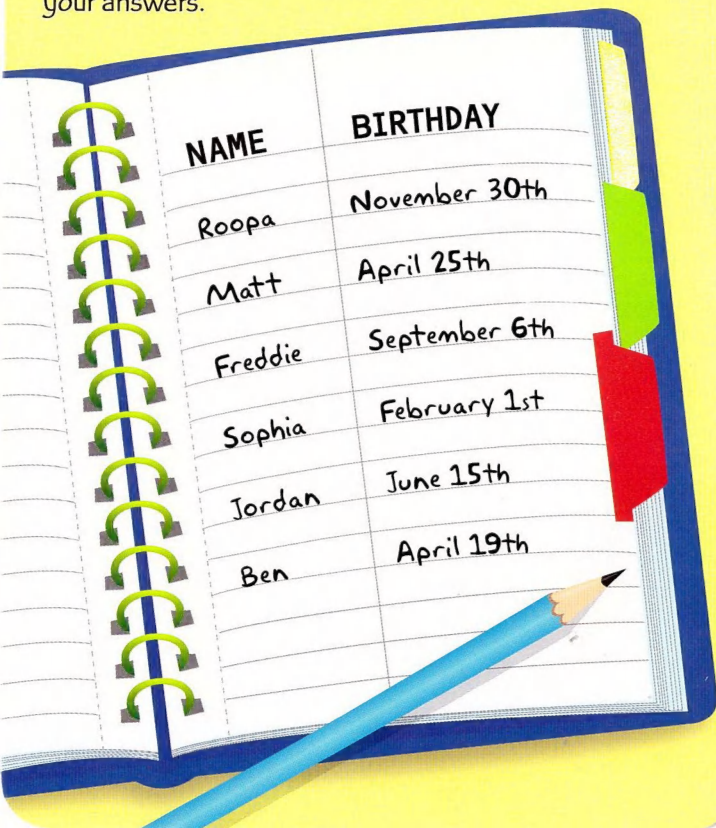 your answers.
NAME BIRTHDAY
Roopa November 30th
Matt April 25th
Freddie September 6th
Sophia February 1st
Jordan June 15th
Ben April 19th